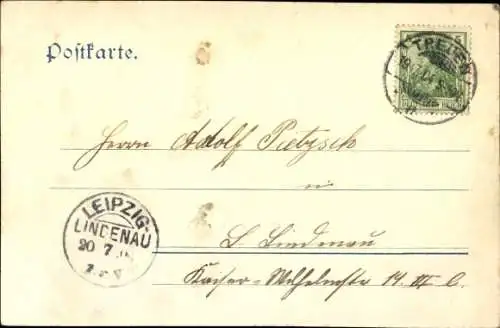 Postkarte.
TREUEN
19.7.04
Herrn Adolf Pietzsch
in
L. Lindenau
Kaiser-Wilhelmstr 14 III l.
LEIPZIG-
LINDENAU
20 7